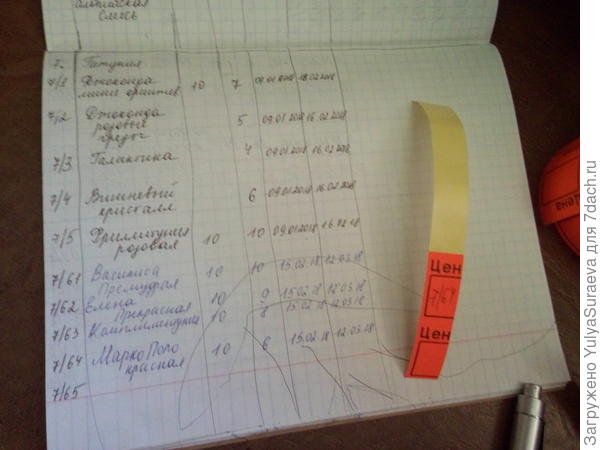 альпийская
смесь
7. Петуния
7/1 Джоконда 10 7 09.01.2018 18.02.2018
мини
7/2 Джоконда 5 09.01.2018 16.02.2018
розовые
7/3 Галактика 4 09.01.2018 16.02.2018
7/4 Вишневый 6 09.01.2018 16.02.2018
кристалл
7/5 Фриллитуния 10 10 09.01.2018 16.02.18
розовая
7/61 Василиса 10 10 15.02.18 12.03.18
Премудрая
7/62 Елена 10 9 15.02.18 12.03.18
Прекрасная
7/63 Комплиментуния 10 8 15.02.18 12.03.18
7/64 Марко Поло 10 6 15.02.18 12.03.18
красная
7/65
Цен
7/64
Цен
Цена
Загружено YulyaSuraeva для 7dach.ru